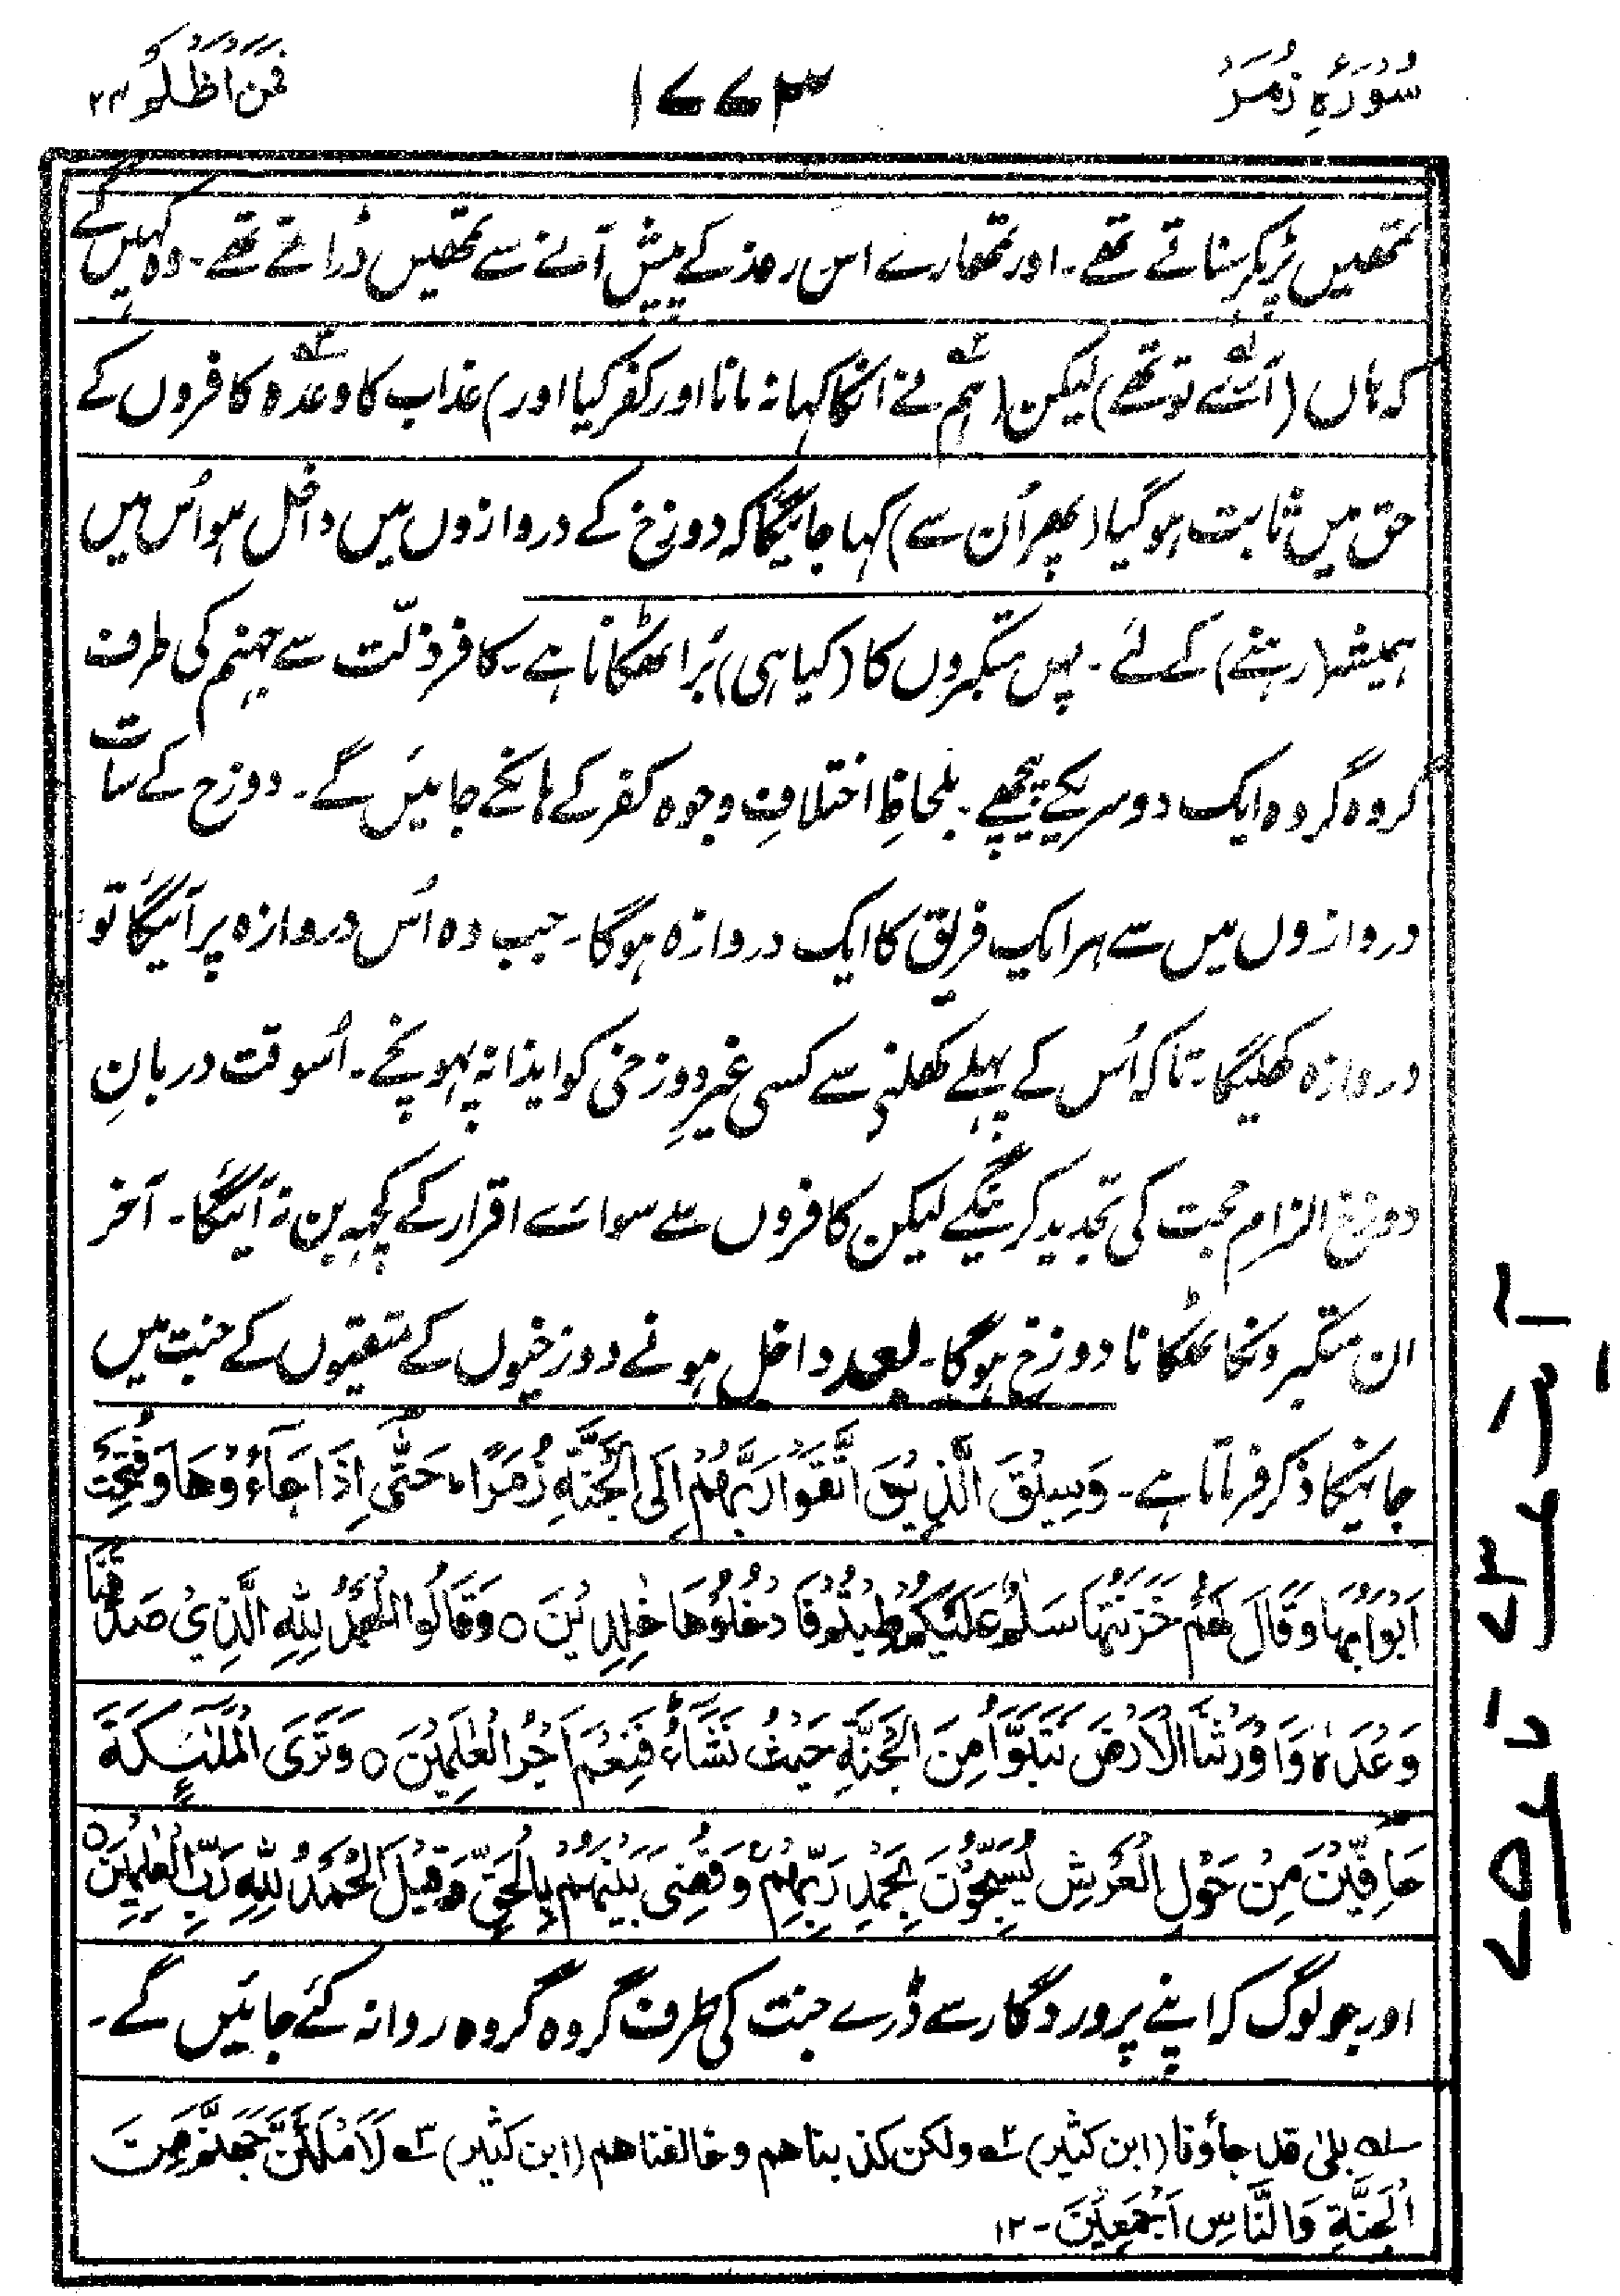 سُوْرَۂِ زُمَرْ
۱۷۷۳
فَمَنْ اَظْلَمُ ۲۴
تمھیں پڑہکر سناتے تھے۔ اور تمھارے اس روز کے پیش آنے سے تمھیں ڈراتے تھے۔ وہ کہیں گے
کہ ہاں (آئے تو تھے) لیکن (ہم نے انکا کہا نہ مانا اور کفر کیا اور) عذاب کا وعدہ کافروں کے
حق میں ثابت ہو گیا (پھر اُن سے) کہا جائیگا کہ دوزخ کے دروازوں میں داخل ہو اُس میں
ہمیشہ (رہنے) کے لئے۔ پس متکبروں کا (کیا ہی) بُرا ٹھکانا ہے۔ کافر ذلّت سے جہنم کی طرف
گروہ گروہ ایک دوسریکے پیچھے۔ بلحاظِ اختلافِ وجوہ کفر کے ہانکے جائیں گے۔ دوزخ کے سات
دروازوں میں سے ہر ایک فریق کا ایک دروازہ ہوگا۔ جب وہ اُس دروازہ پر آئیگا تو
دروازہ کھلیگا۔ تاکہ اُس کے پہلے کھلنے سے کسی غیرِ دوزخی کو ایذا نہ پہونچے۔ اُسوقت دربانِ
دوزخ الزامِ حجت کی تجدید کرینگے لیکن کافروں سے سوائے اقرار کے کچہہ بن نہ آئیگا۔ آخر
ان متکبرونکا ٹھکانا دوزخ ہوگا۔ بعد داخل ہونے دوزخیوں کے متقیوں کے جنت میں
جانیکا ذکر فرماتا ہے۔ وَسِيْقَ الَّذِيْنَ اتَّقَوْا رَبَّهُمْ اِلَى الْجَنَّةِ زُمَرًا ؕ حَتّٰى اِذَا جَآءُوْهَا وَفُتِحَتْ
اَبْوَابُهَا وَقَالَ لَهُمْ خَزَنَتُهَا سَلٰمٌ عَلَيْكُمْ طِبْتُمْ فَادْخُلُوْهَا خٰلِدِيْنَ ○ وَقَالُوا الْحَمْدُ لِلّٰهِ الَّذِيْ صَدَقَنَا
وَعْدَهٗ وَاَوْرَثَنَا الْاَرْضَ نَتَبَوَّاُ مِنَ الْجَنَّةِ حَيْثُ نَشَآءُ ۚ فَنِعْمَ اَجْرُ الْعٰمِلِيْنَ ○ وَتَرَى الْمَلٰٓئِكَةَ
حَآفِّيْنَ مِنْ حَوْلِ الْعَرْشِ يُسَبِّحُوْنَ بِحَمْدِ رَبِّهِمْ ۚ وَقُضِيَ بَيْنَهُمْ بِالْحَقِّ وَقِيْلَ الْحَمْدُ لِلّٰهِ رَبِّ الْعٰلَمِيْنَ ○
اور جو لوگ کہ اپنے پروردگار سے ڈرے جنت کی طرف گروہ گروہ روانہ کئے جائیں گے۔
۱ے بلیٰ قد جاؤنا (ابن کثیر) ۲ے ولکن کذبناهم وخالفناهم (ابن کثیر) ۳ے لَاَمْلَـَٔنَّ جَهَنَّمَ مِنَ
الْجِنَّةِ وَالنَّاسِ اَجْمَعِيْنَ۔ ۱۲
آیت ۷۳ تا ۷۵